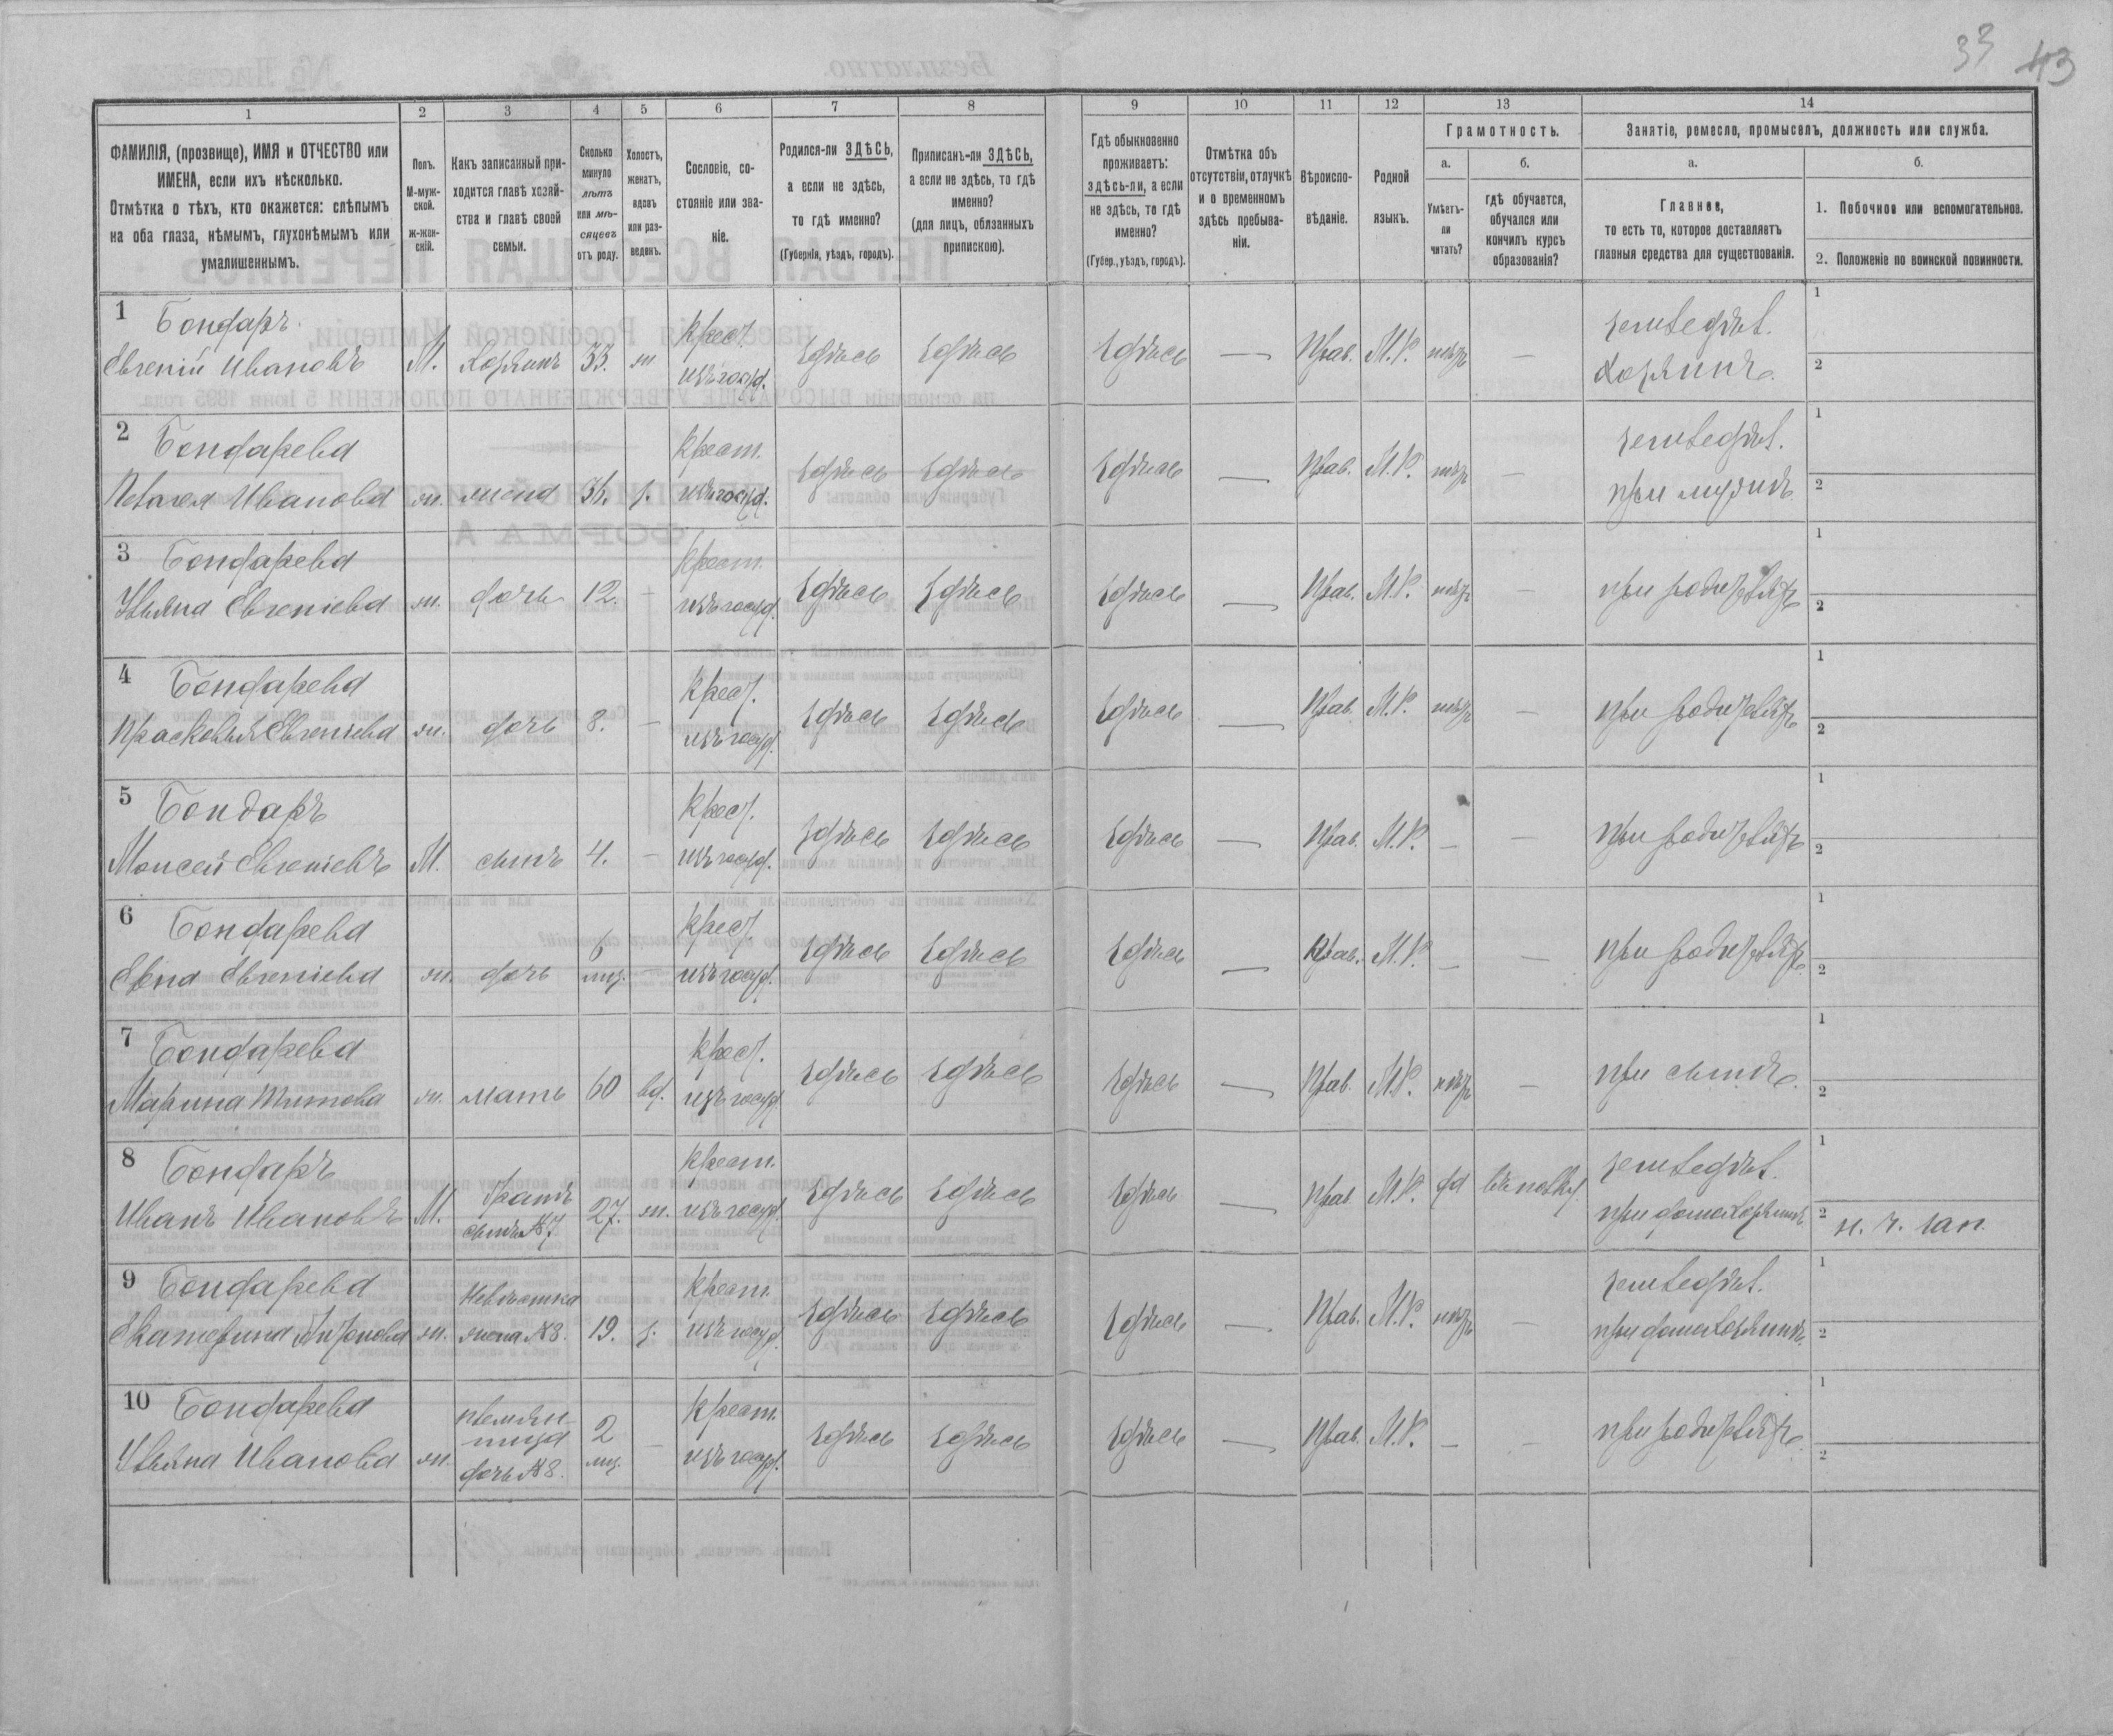 33 43
1 2 3 4 5 6 7 8 9 10 11 12 13 14
ФАМИЛІЯ, (прозвище), ИМЯ и ОТЧЕСТВО или
ИМЕНА, если ихъ нѣсколько.
Отмѣтка о тѣхъ, кто окажется: слѣпымъ
на оба глаза, нѣмымъ, глухонѣмымъ или
умалишеннымъ.
Полъ.
М-муж-
ской.
ж-жен-
скій.
Какъ записанный при-
ходится главѣ хозяй-
ства и главѣ своей
семьи.
Сколько
минуло
лѣтъ
или мѣ-
сяцевъ
отъ роду.
Холостъ,
женатъ,
вдовъ
или раз-
веденъ.
Сословіе, со-
стояніе или зва-
ніе.
Родился-ли ЗДѢСЬ,
а если не здѣсь,
то гдѣ именно?
(Губернія, уѣздъ, городъ).
Приписанъ-ли ЗДѢСЬ,
а если не здѣсь, то гдѣ
именно?
(для лицъ, обязанныхъ
припискою).
Гдѣ обыкновенно
проживаетъ:
здѣсь-ли, а если
не здѣсь, то гдѣ
именно?
(Губер., уѣздъ, городъ).
Отмѣтка объ
отсутствіи, отлучкѣ
и о временномъ
здѣсь пребыва-
ніи.
Вѣроиспо-
вѣданіе.
Родной
языкъ.
Грамотность.
а.
Умѣетъ-
ли
читать?
б.
гдѣ обучается,
обучался или
кончилъ курсъ
образованія?
Занятіе, ремесло, промыселъ, должность или служба.
а.
Главное,
то есть то, которое доставляетъ
главныя средства для существованія.
б.
1. Побочное или вспомогательное.
2. Положеніе по воинской повинности.
1 Бондарь Крест. земледѣл. 1
Евгеній Ивановъ М. хозяинъ 33. ж изъ госуд. здѣсь здѣсь здѣсь — Прав. М.Р. нѣтъ — хозяинъ. 2
2 Бондарева Крест. земледѣл. 1
Пелагея Иванова ж. жена 36. з. изъ госуд. здѣсь здѣсь здѣсь — Прав. М.Р. нѣтъ — при мужѣ 2
3 Бондарева Крест. 1
Ульяна Евгеніева ж. дочь 12. - изъ госуд. здѣсь здѣсь здѣсь — Прав. М.Р. нѣтъ — при родителяхъ 2
4 Бондарева Крест. 1
Прасковья Евгеніева ж. дочь 8. - изъ госуд. здѣсь здѣсь здѣсь — Прав. М.Р. нѣтъ — при родителяхъ 2
5 Бондарь Крест. 1
Моисей Евгеніевъ М. сынъ 4. - изъ госуд. здѣсь здѣсь здѣсь — Прав. М.Р. - — при родителяхъ 2
6 Бондарева 6 Крест. 1
Евгеніева ж. дочь мц. - изъ госуд. здѣсь здѣсь здѣсь — Прав. М.Р. - — при родителяхъ 2
7 Бондарева Крест. 1
Марина Титова ж. мать 60 вд. изъ госуд. здѣсь здѣсь здѣсь — Прав. М.Р. нѣтъ — при сынѣ. 2
8 Бондарь братъ Крест. земледѣл. 1
Иванъ Ивановъ М. сынъ №7 27. ж. изъ госуд. здѣсь здѣсь здѣсь — Прав М.Р. да при домохозяинѣ 2
9 Бондарева невѣстка Крест. земледѣл. 1
Екатерина Антонова ж. жена №8. 19. з. изъ госуд. здѣсь здѣсь здѣсь — Прав. М.Р. нѣтъ — при домохозяинѣ. 2
10 Бондарева племян- 2 Крест. 1
ница
Ульяна Иванова ж. дочь №8. мц. - изъ госуд. здѣсь здѣсь здѣсь — Прав. М.Р. - — при родителяхъ. 2